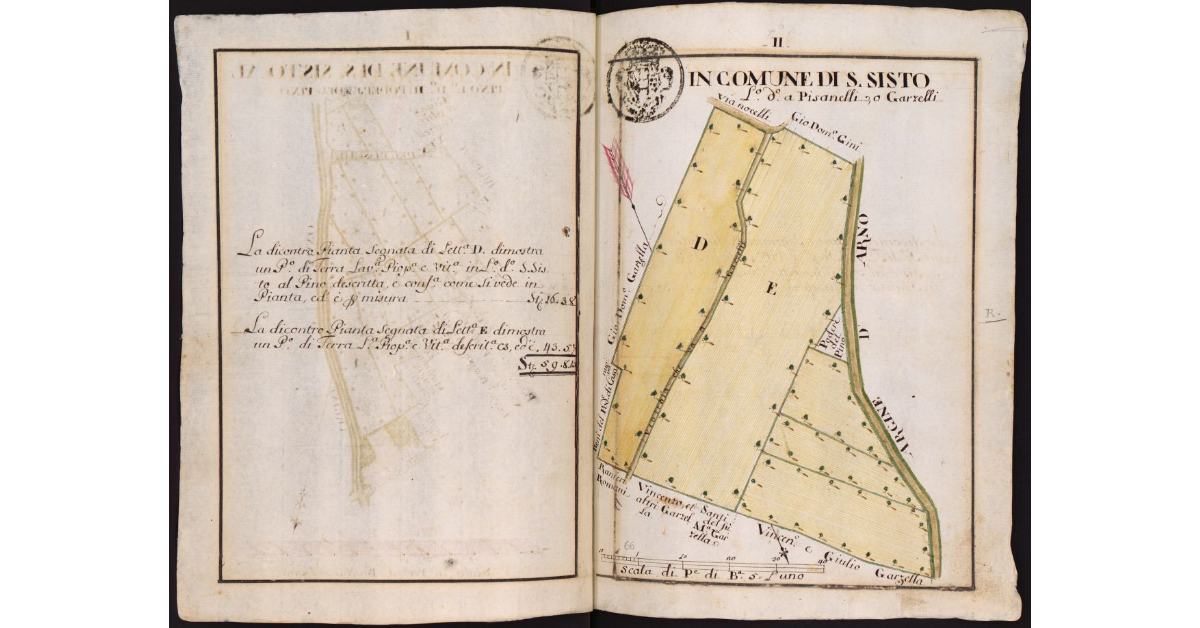 I
La dicontro Pianta Segnata di Lett.ª D. dimostra
un P.º di Terra Lav.ª Piop.ª e Vit.ª in L.º d.º S. Sis
to al Pino descritta, e conf.ª come si vede in
Pianta, ed è p misura St: 16.38
La dicontro Pianta Segnata di Lett.ª E dimostra
un P.º di Terra L.ª Piop.ª e Vit.ª descrit.ª cs, 43.5
St: 59.8
II
IN COMUNE DI S. SISTO
L.º d.º a Pisanelli, o Garzelli
Via nocelli
Gio Dom.º Gini
Gio Dom.º Garzella
D
E
ARNO
D
ARGINE
Podere
del
Pino
R.
Beni del Pod.e di
Via
Ranieri
Romani
Vincenzo, et Santi
altri Garzel
la
M.º Gar
zella
Vincen.º e Giulio Garzella
66
Scala di P.e di B.ª 5 l'uno